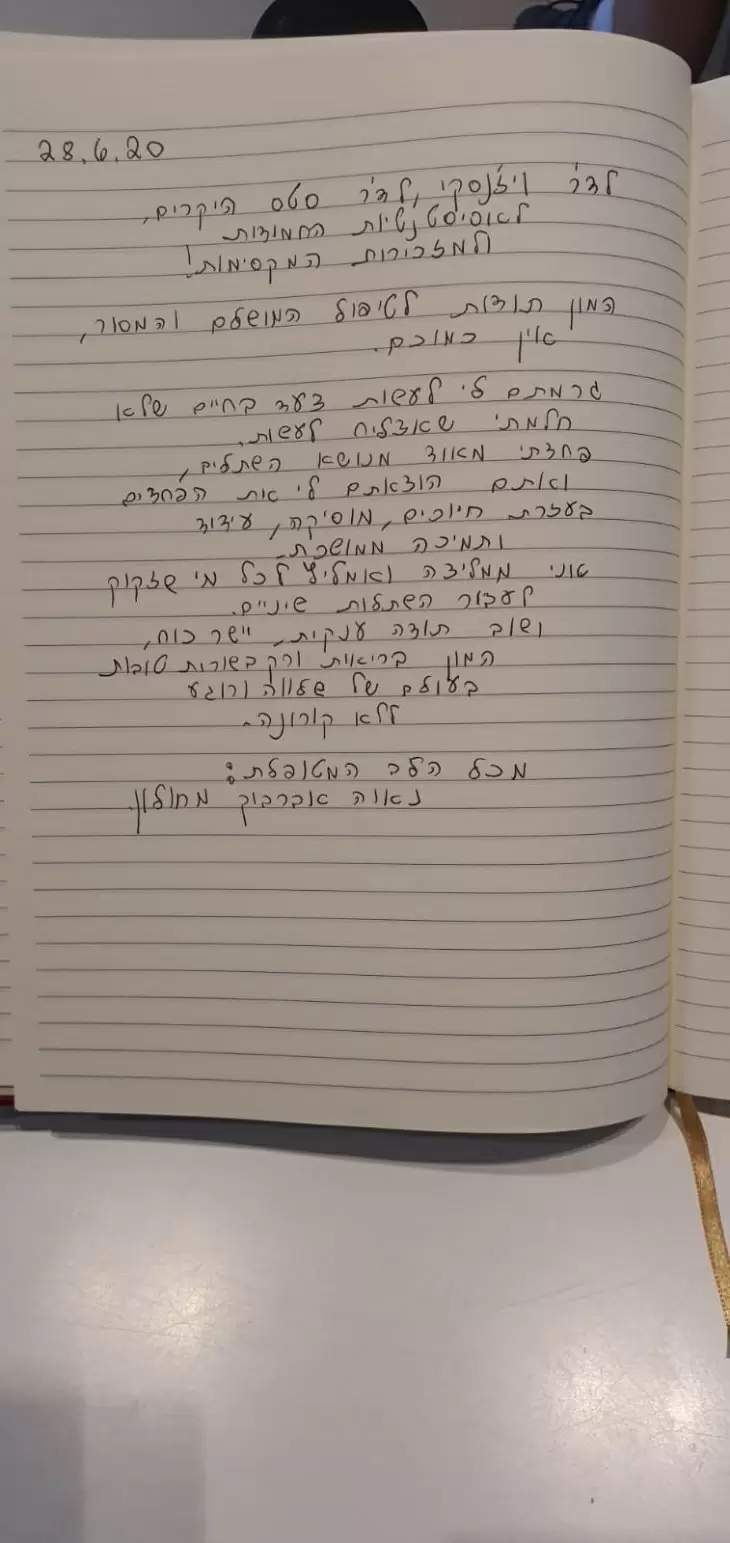 28.6.20
לד"ר ויז'נסקי, לד"ר סטס היקרים,
לאסיסטנטיות החמודות
ולמזכירות המקסימות!
המון תודות לטיפול המושלם והמסור,
אין כמוכם.
גרמתם לי לעשות צעד בחיים שלא
חלמתי שאצליח לעשות.
פחדתי מאוד מנושא השתלים,
ואתם הוצאתם לי את הפחדים
בעזרת חיוכים, מוסיקה, עידוד
ותמיכה ממושכת.
אני ממליצה ואמליץ לכל מי שזקוק
לעבור השתלות שיניים.
ושוב תודה ענקית, יישר כוח,
המון בריאות ורק בשורות טובות
בעולם של שלווה ורוגע
ללא קורונה.
מכל הלב המטופלת:
נאווה אברבוק מחולון.